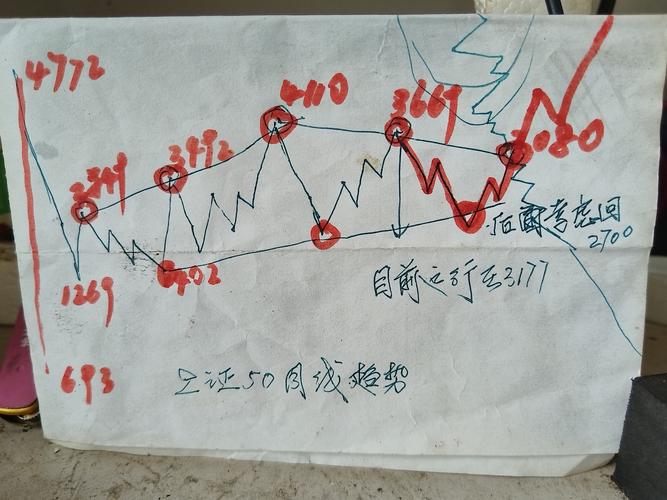 4772
3492
4110
3669
3080
后面考虑回
2700
1269
1402
目前运行至3177
693
上证50月线趋势